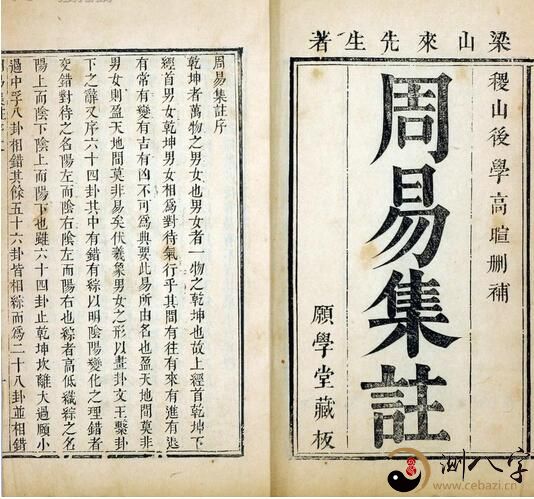 梁山來先生著
稷山後學高暄刪補
周易集註
願學堂藏板
周易集註序
乾坤者萬物之男女也男女者一物之乾坤也故上經首乾坤下
經首男女乾坤男女相爲對待氣行乎其間有往有來有進有退
有常有變有吉有凶不可爲典要此易所由名也盈天地間莫非
男女則盈天地間莫非易矣伏羲象男女之形以畫卦文王繫卦
下之辭又序六十四卦其中有錯有綜以明陰陽變化之理錯者
交錯對待之名陽左而陰右陰左而陽右也綜者高低織綜之名
陽上而陰下陰上而陽下也雖六十四卦止乾坤坎離大過頤小
過中孚八卦相錯其餘五十六卦皆相綜而爲二十八卦並相錯
測八字
www.cebazi.cn